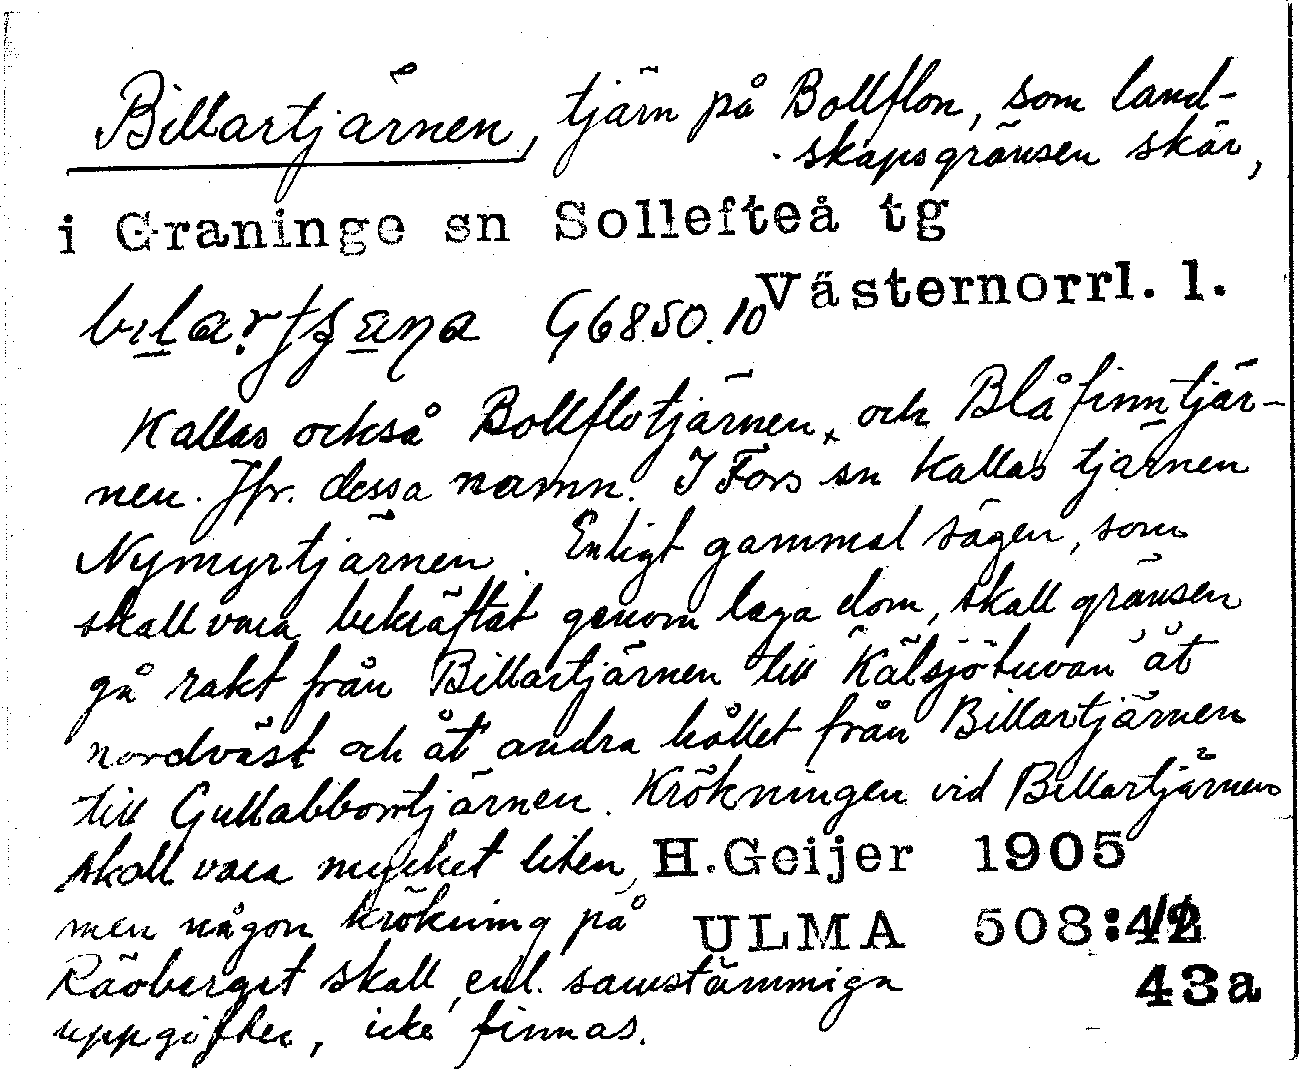 Billartjärnen, tjärn på Bollflon, som land-
skapsgränsen skär,
i Graninge sn Sollefteå tg
Västernorrl. l.
G6850.10
Kallas också Bollflotjärnen, och Blåfinntjär-
nen. Jfr. dessa namn. I Fors sn kallas tjärnen
Nymyrtjärnen. Enligt gammal sägen, som
skall vara bekräftat genom laga dom, skall gränsen
gå rakt från Billartjärnen till Kälsjötuvan åt
nordväst och åt andra hållet från Billartjärnen
till Gullabborrtjärnen. Krökningen vid Billartjärnen
skall vara mycket liten, H. Geijer 1905
men någon krökning på ULMA 508:42
Råberget skall, enl. samstämmiga 43a
uppgifter, icke finnas.